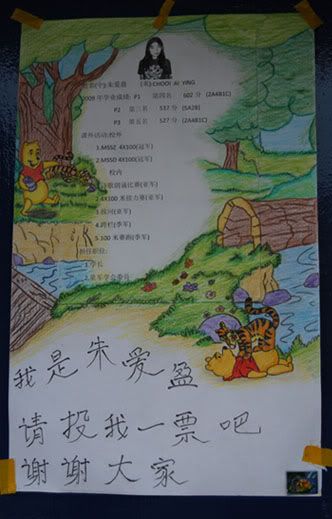 (中):朱爱盈 (英):CHOOI AI YING
2009 年学业成绩: P1 第四名 602 分 (2A4B1C)
P2 第三名 537 分 (5A2B)
P3 第五名 527 分 (2A4B1C)
课外活动:校外
1.MSSZ 4X100(冠军)
2.MSSD 4X100(冠军)
校内
歌朗诵比赛(亚军)
2.4X100 米接力赛(亚军)
3.(亚军)
4.跨栏(季军)
5.100 米赛跑(季军)
担任职位:
1.学长
2.童军学会委员
我是朱爱盈
请投我一票吧
谢谢大家